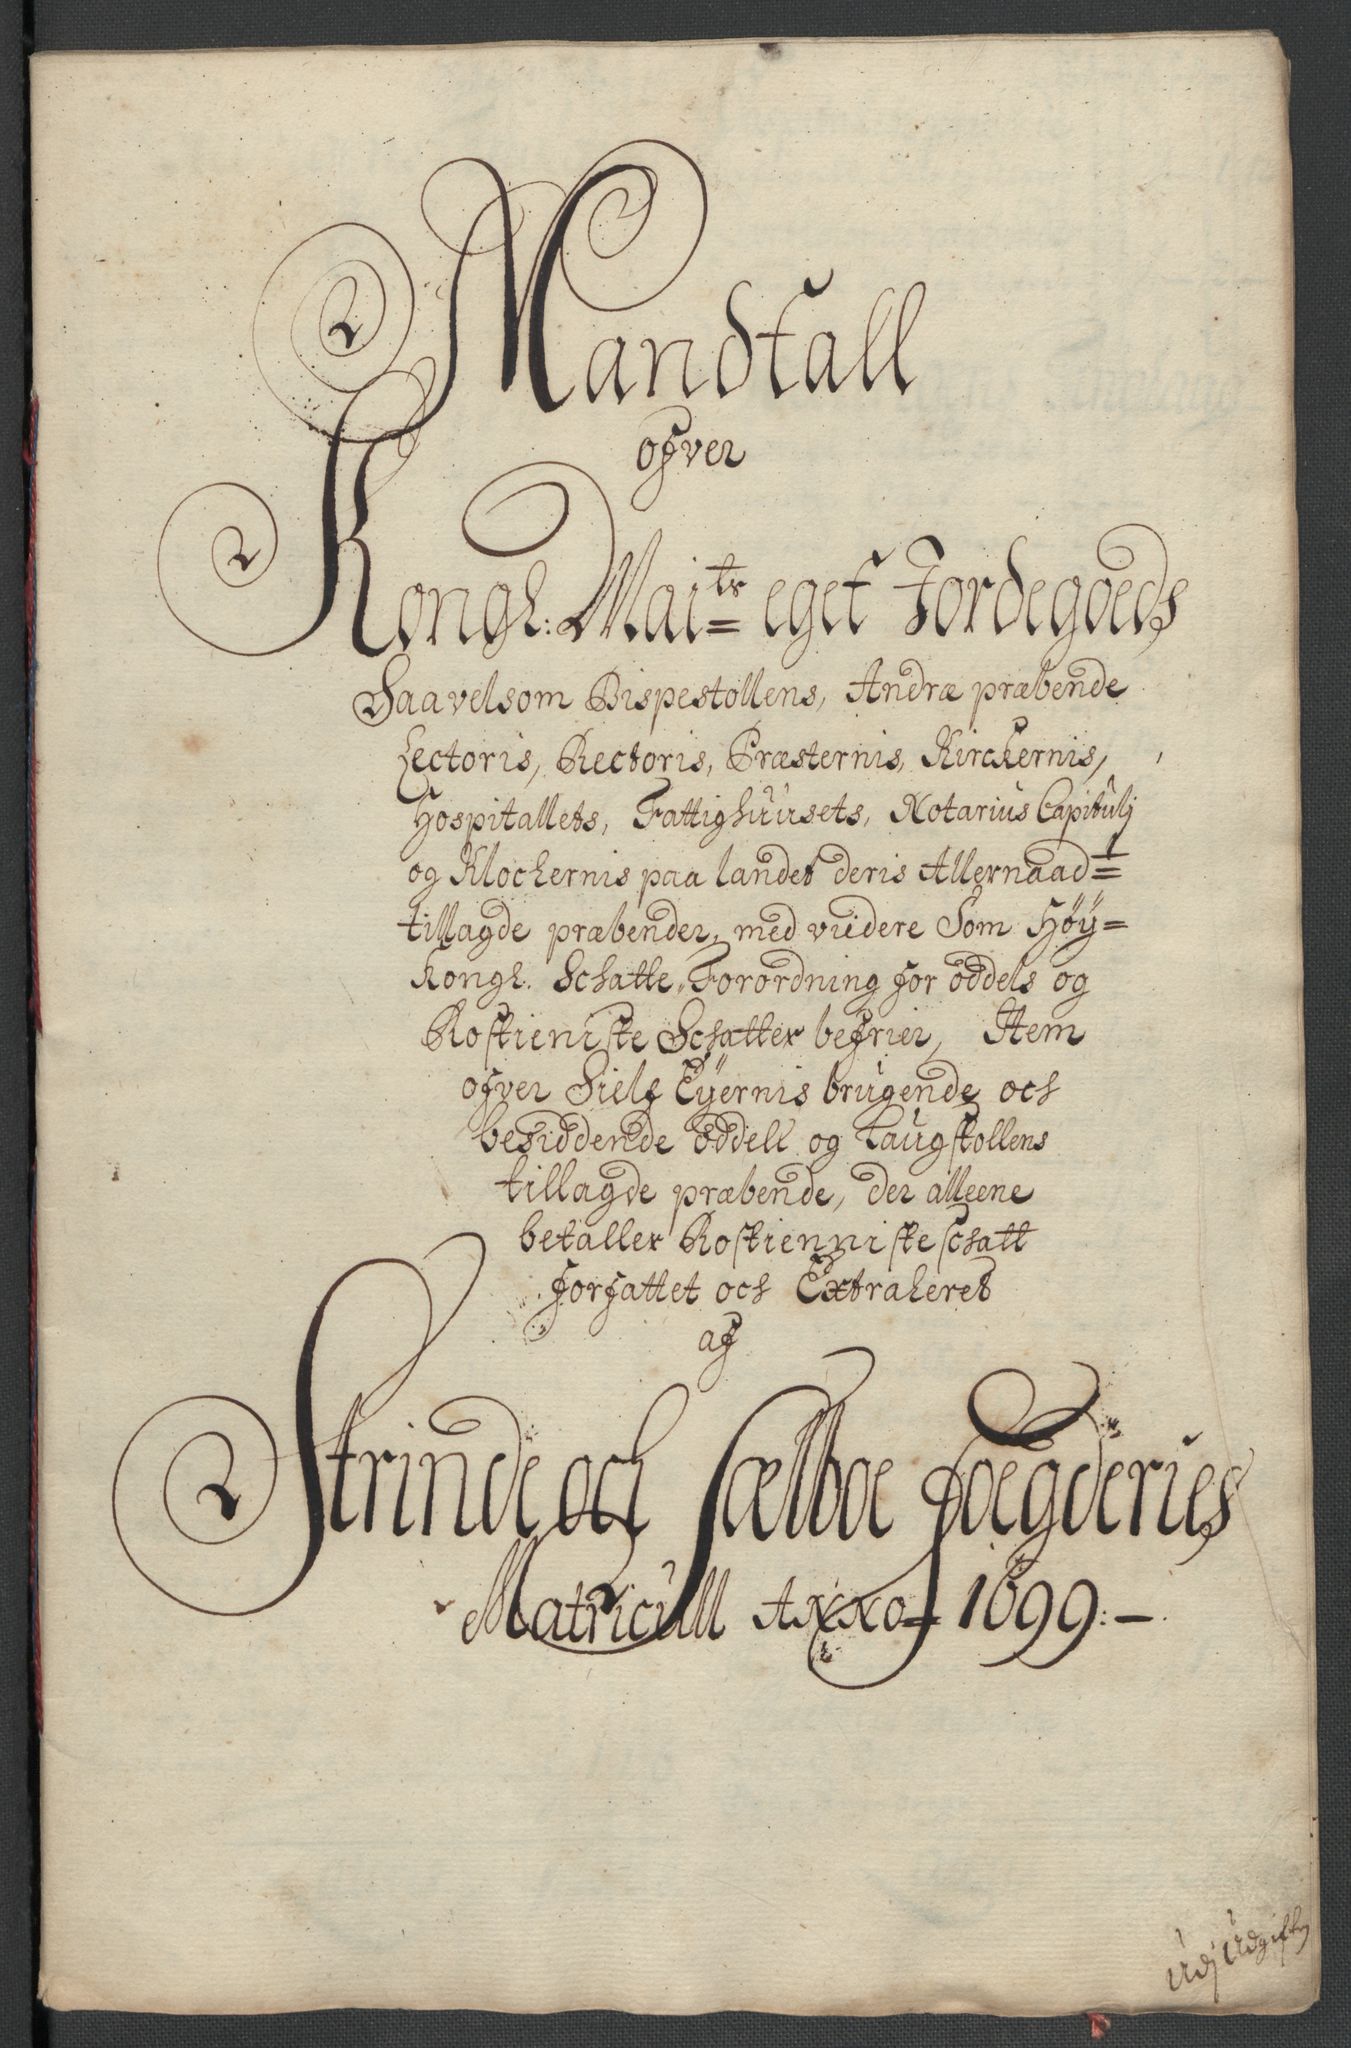 Mandtall
ofver
Kongl: Maitr= eget Jordegoeds
Saavelsom Bispestollens, Andræ præbende
Lectoris, Rectoris, Præsternis, Kirckernis,
Hospitallets, Fattighuusets, Notarius Capitulj
og Klockernis paa landet deris Allernaadt=
tillagde præbender, med viidere Som Høy=
Kongl. Schatte, Forordning for oddels og
Rostieniste Schatter befrier, Item
ofver Sielf Eyernis brugende och
besiddende oddell og Laugstollens
tillagde præbende, der alleene
betaller Rostienniste schatt
forfattet och Extraheret
af
Strinde och Sælboe foegderies
Matricull Anno 1699:
Udj Udgift